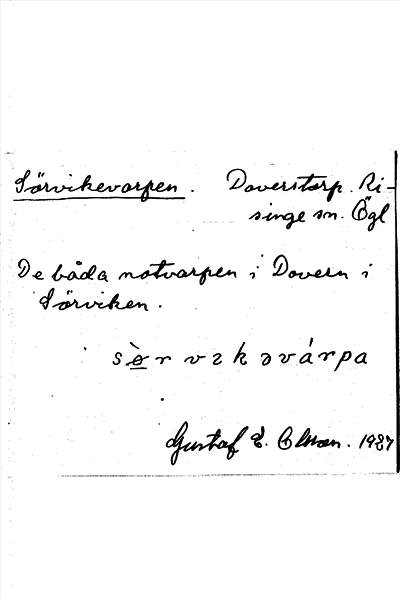 Sörvikevarpen. Doverstorp. Ri-
singe sn. Ögl
De båda notvarpen i Dovern i
Sörviken.
sø̀rvɜkəvárpa
Gustaf E. Olsson. 1927